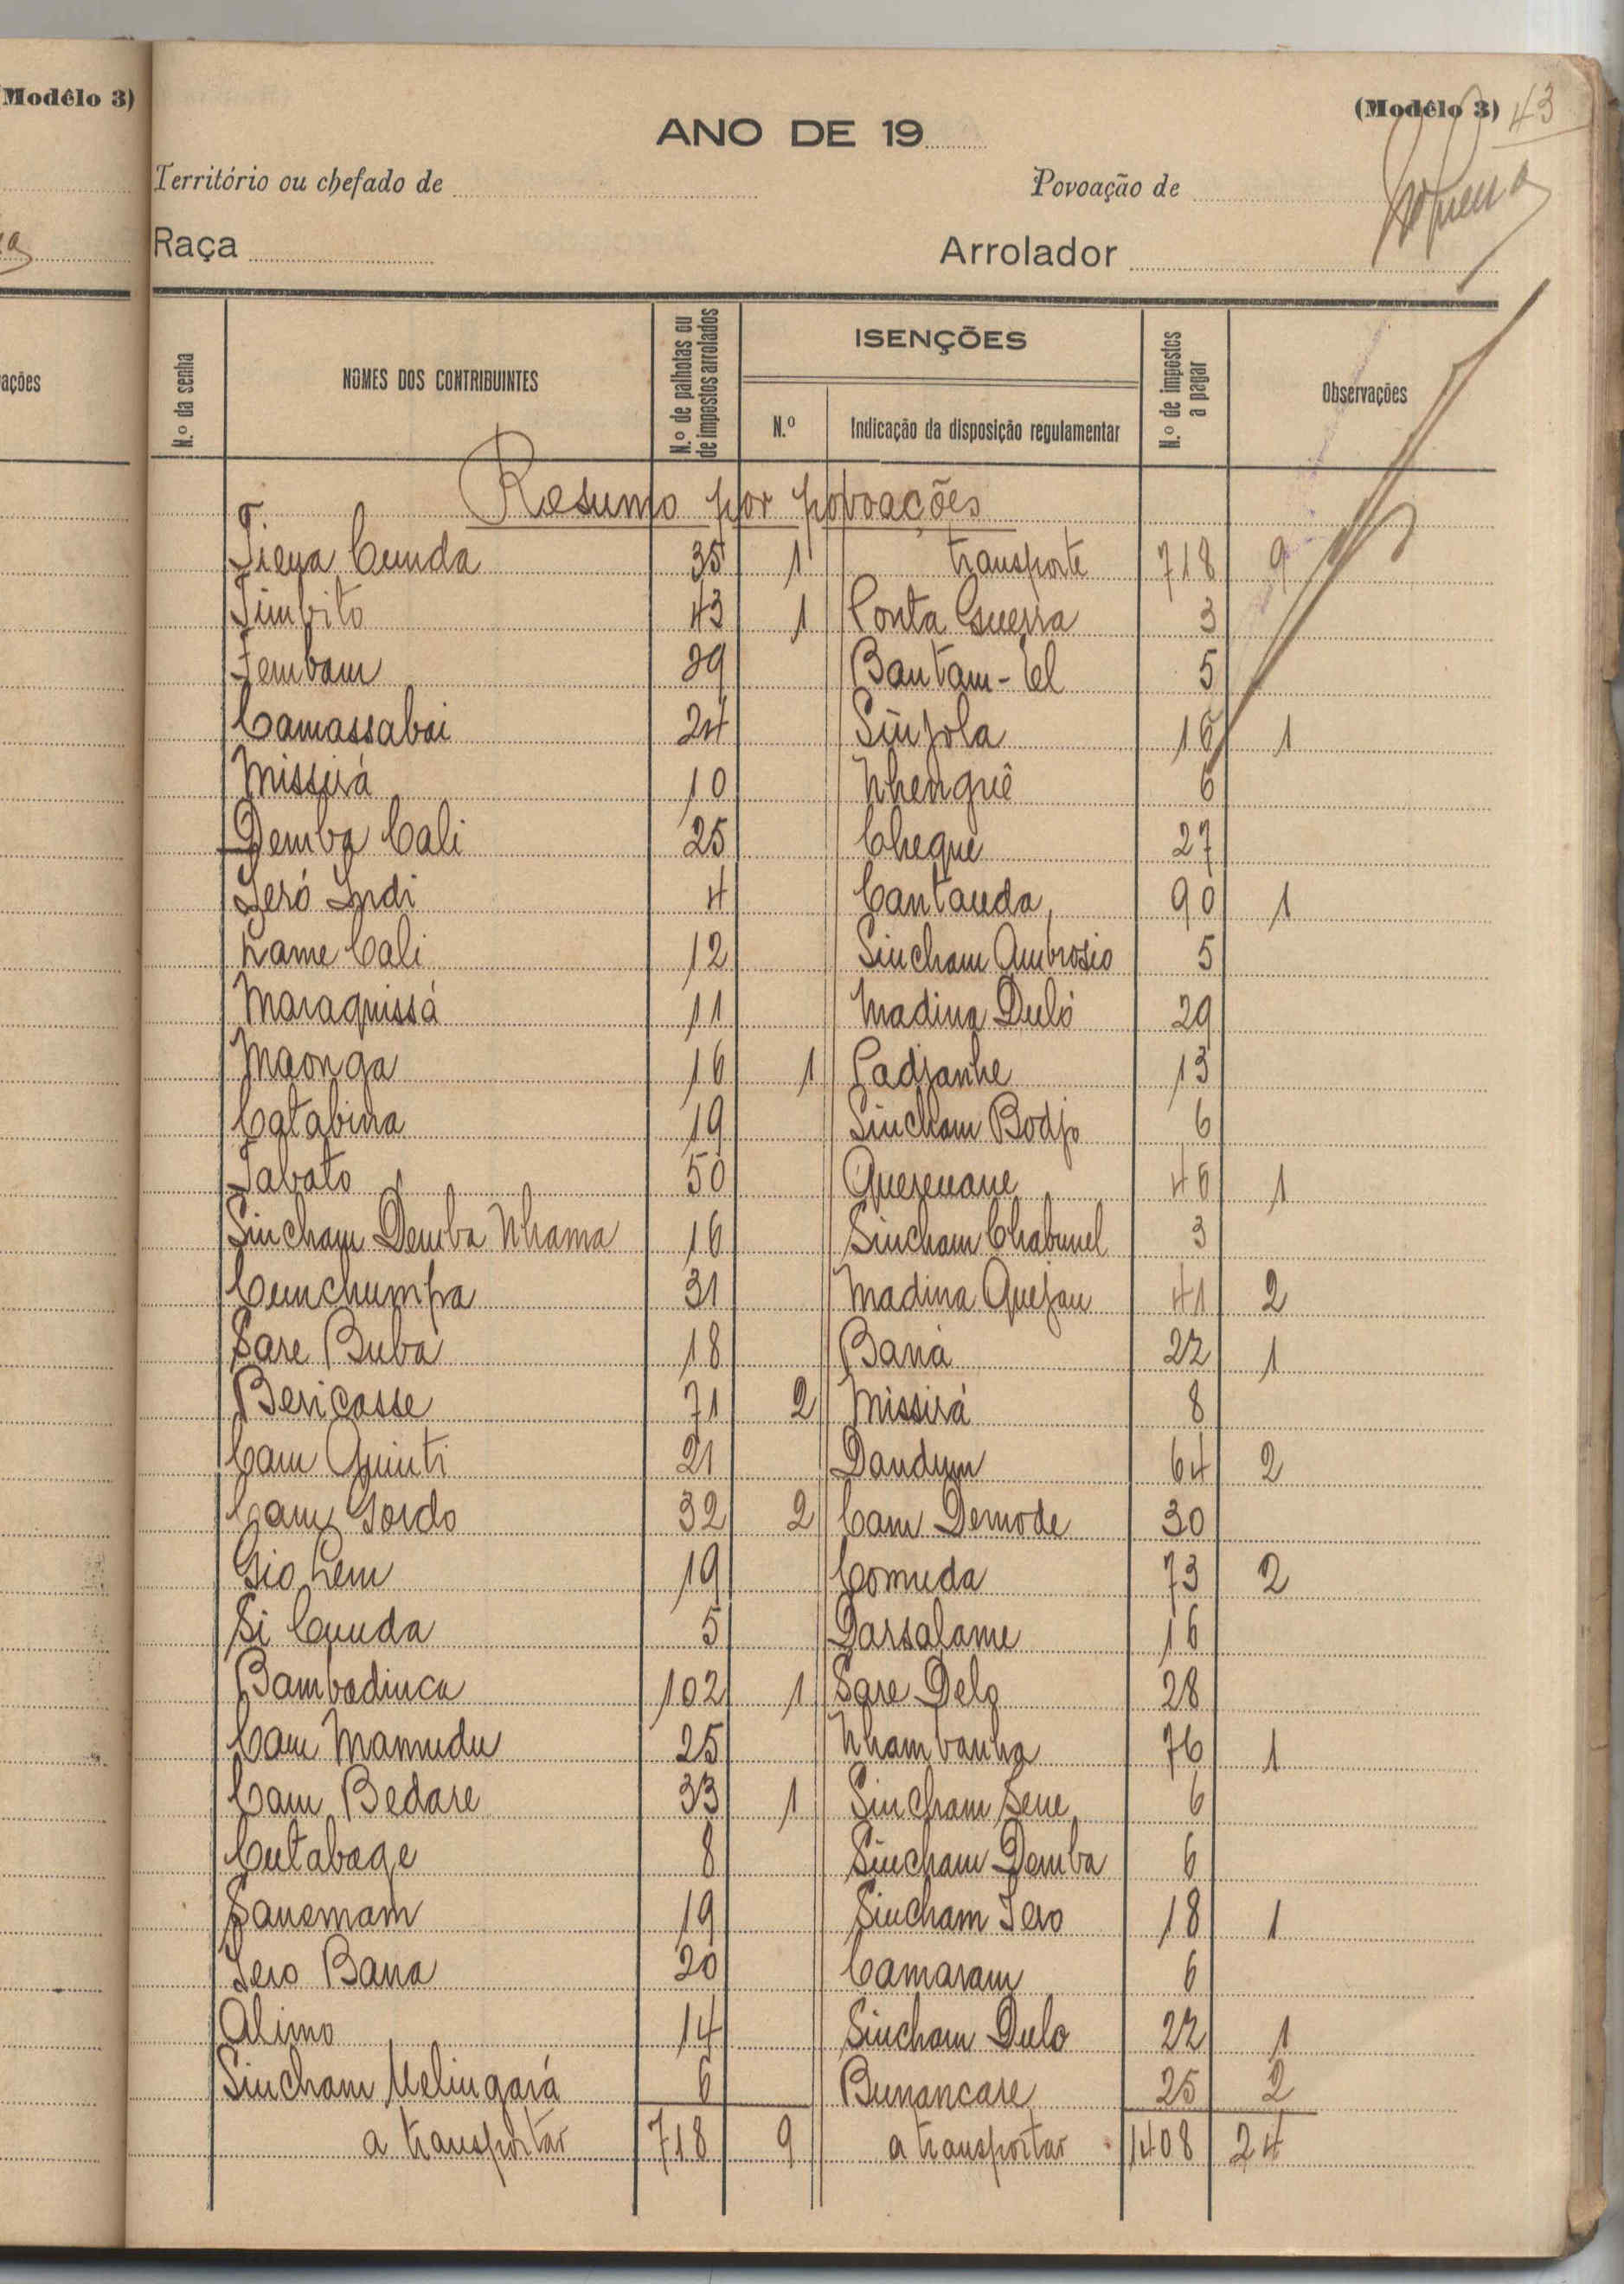 Modêlo 3)
(Modêlo 3) 43
ANO DE 19
Território ou chefado de Povoação de
Raça Arrolador
ações
N.º da senha
NOMES DOS CONTRIBUINTES
N.º de palhotas ou de impostos arrolados
ISENÇÕES
N.º
Indicação da disposição regulamentar
N.º de impostos a pagar
Observações
Resumo por povoações
Cunda 35 1 transporte 718 9
Timbito 43 1 Ponta Guerra 3
Fembam 29 Bantam-El 5
Camassabai 24 16 1
Missirá 10 Nhenguê 6
Demba Cali 25 Cheque 27
Seró Indi 4 Cantauda 90 1
Name Cali 12 Sincham Ambrosio 5
Maraquissá 11 Madina Duló 29
Maonga 16 1 Padjanhe 13
Catabina 19 Sincham Bodjo 6
Tabato 50 Querenane 46 1
Sincham Demba Nhama 16 Sincham 3
Cunchumpa 31 Madina Quejau 41 2
Sare Buba 18 Baná 22 1
Bericasse 71 2 Missirá 8
Cam Quinti 21 Dandum 64 2
Cam Gordo 32 2 Cam Demode 30
Gio 19 Comuda 73 2
Si Cunda 5 Darsalame 16
Bambadinca 102 1 Sare Delo 28
Cam Mamudu 25 Nhambanha 76 1
Cam Bedare 33 1 Sincham Sene 6
Cutabage 8 Sincham Demba 6
Sanemam 19 Sincham Sero 18 1
Sero Bana 20 Camaram 6
Alimo 14 Sincham Dulo 22 1
Sincham Melingará 6 Bunancare 25 2
a transportar 718 9 a transportar 1408 24